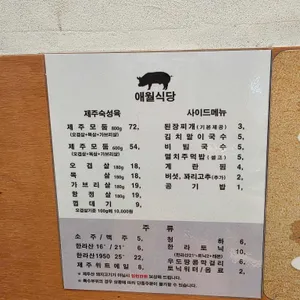 애월식당
제주숙성육
제주모듬 800g 72,
(오겹살+목살+가브리살)
제주모듬 600g 54,
(오겹살+목살+가브리살)
오겹살 180g 18,
목살 180g 18,
가브리살 180g 19,
항정살 180g 19,
껍데기
사이드메뉴
된장찌개(기본제공) 3,
김치말이국수 5,
비빔국수 5,
멸치주먹밥(셀프)
계란찜
버섯, 꽈리고추(추가)
공기밥 1,
주류
소주/맥주 5,
한라산 16˚/ 21˚ 6,
한라산1950 22,
제주위트에일 8,
청하 6,
한라토닉
우도땅콩막걸리 6,
토닉워터/음료 2,